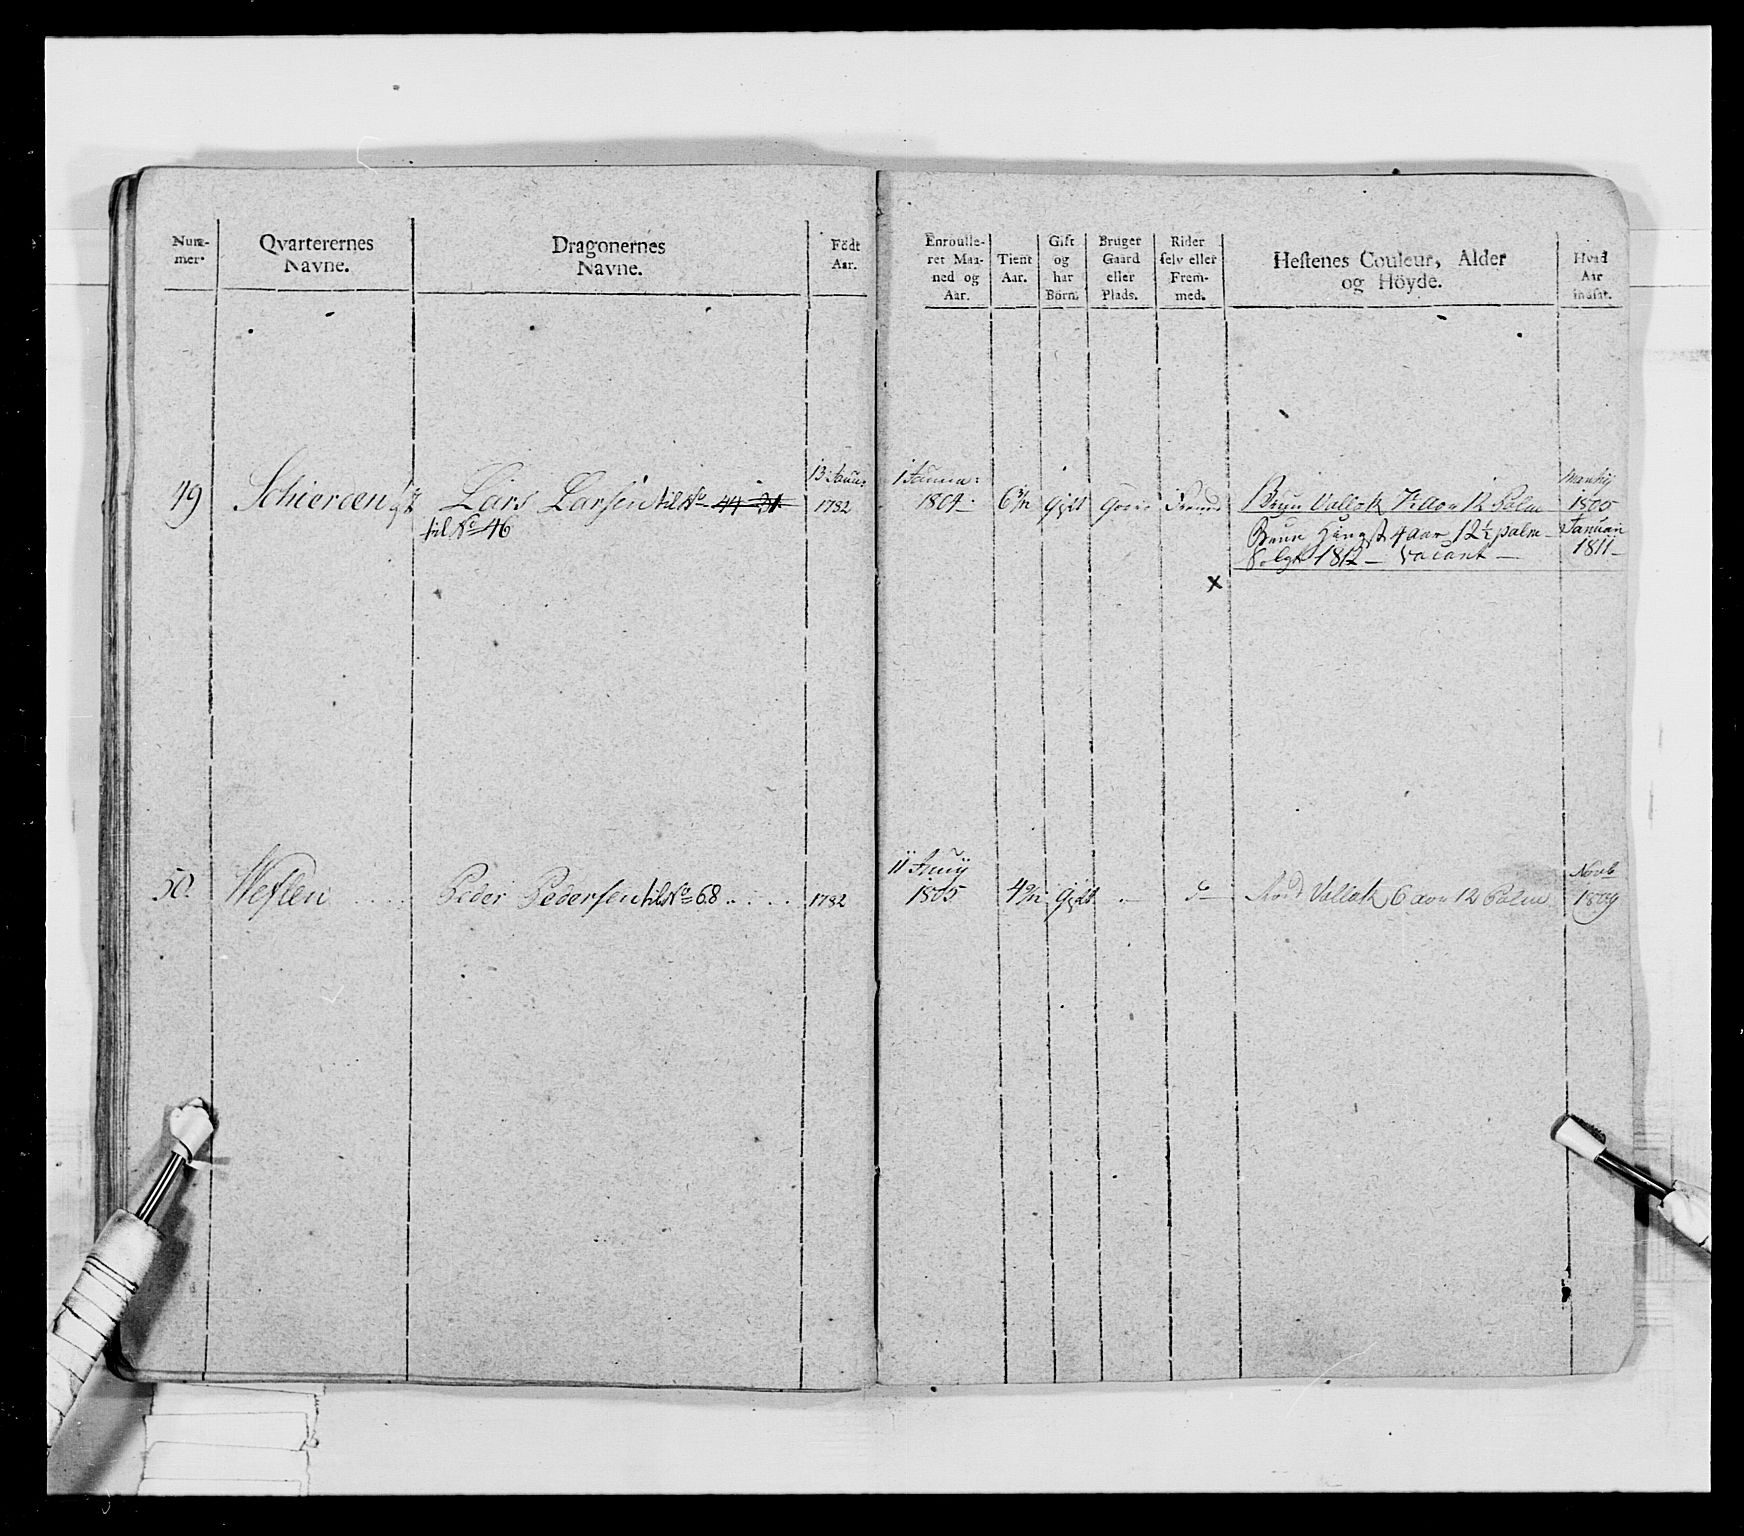 Num-
mer.
Qvarterernes
Navne.
Dragonernes
Navne.
Födt
Aar.
Enroulle-
ret Maa-
ned og
Aar.
Tient
Aar.
Gift
og
har
Börn.
Bruger
Gaard
eller
Plads.
Rider
selv eller
Frem-
med.
Hestenes Couleur, Alder
og Höyde.
Hvad
Aar
indsat.
49 Schieroen
Lars Larsen til No 44 21
til No 46
13 Januar
1782
1 Januar
1804
6
gift
Brun Vallak 7 Aar 12 Palm
1805
Brun Hingst 4 aar 12½ palm
Januari
Solgt 1812 - vacant -
1811
x
50. Weflen
Peder Pedersen til No 68
1782
11 Juny
1805
4
gift
Rød Vallak 6 aar 12 Palm
Novb
1809